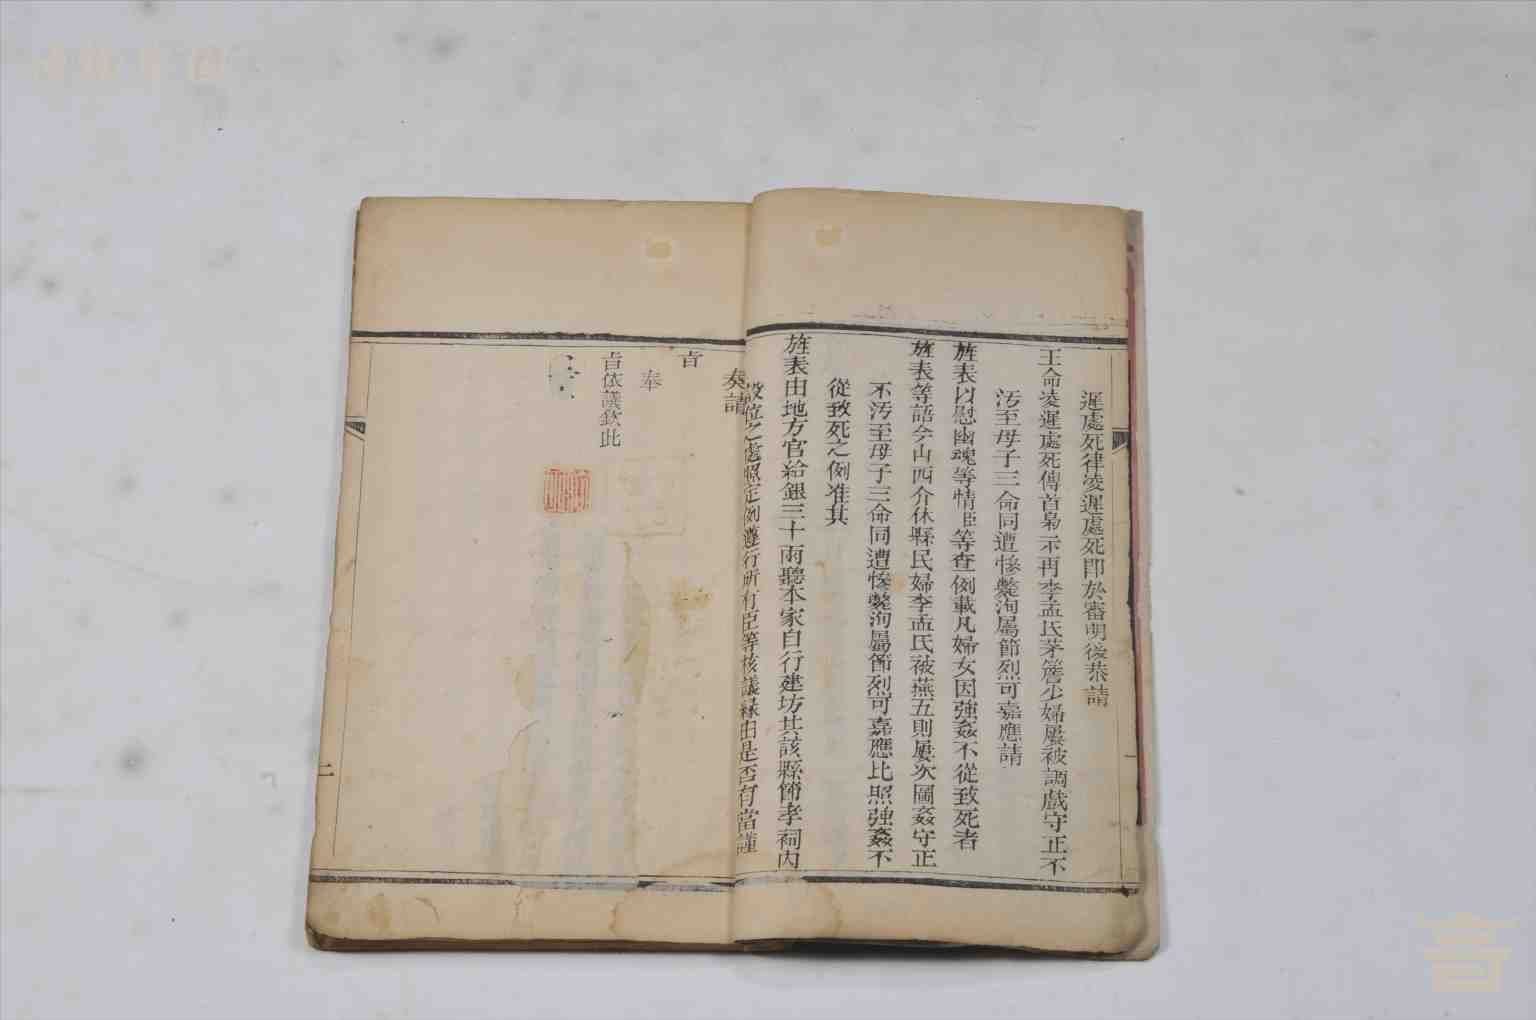 遲處死律凌遲處死即於審明後恭請
王命凌遲處死傳首梟示再李孟氏茅簷少婦屢被調戲守正不
汚至母子三命同遭慘斃洵屬節烈可嘉應請
旌表以慰幽魂等情臣等查例載凡婦女因強姦不從致死者
旌表等語今山西介休縣民婦李孟氏被燕五則屢次圖姦守正
不汚至母子三命同遭慘斃洵屬節烈可嘉應比照強姦不
從致死之例准其
旌表由地方官給銀三十兩聽本家自行建坊其該縣節孝祠內
設位之處照定例遵行所有臣等核議緣由是否有當謹
奏請
旨
奉
旨依議欽此
二